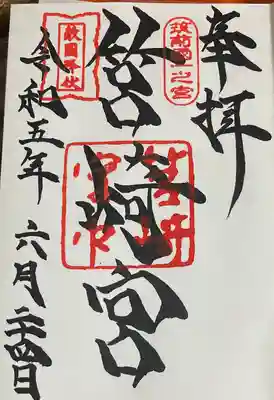 奉拝
筑前國一之宮
筥崎宮
敵国降伏
令和五年 六月二十四日